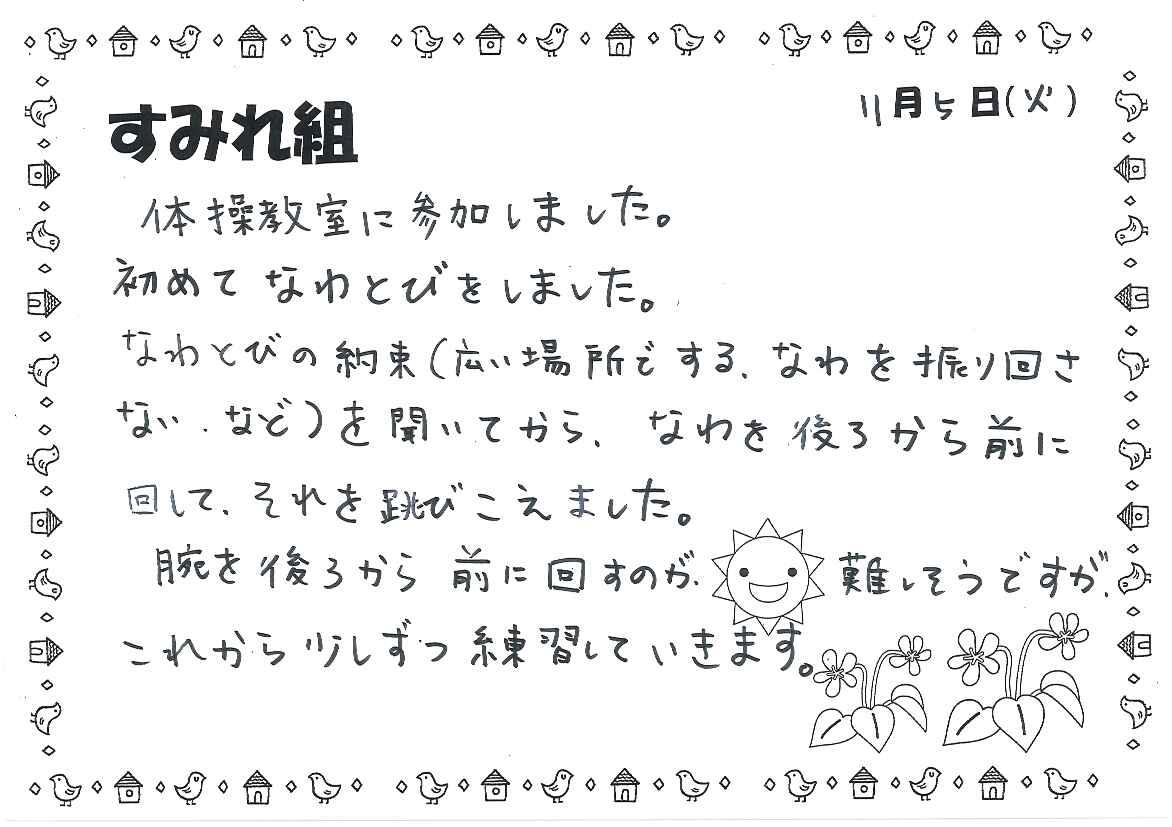 11月5日(火)
すみれ組
体操教室に参加しました。
初めてなわとびをしました。
なわとびの約束(広い場所でする、なわを振り回さ
ない、など)を聞いてから、なわを後ろから前に
回して、それを跳びこえました。
腕を後ろから前に回すのが、難しそうですが、
これから少しずつ練習していきます。